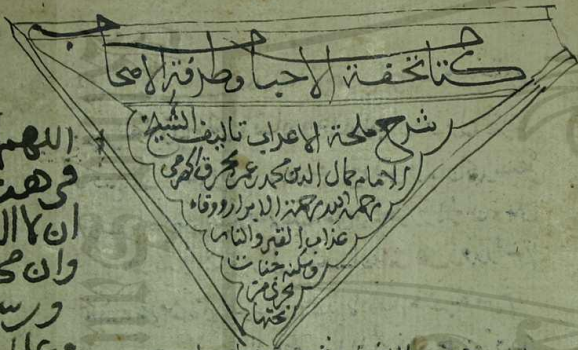 كتاب تحفة الاحباب وطرفة الاصحاب
شرح ملحة الاعراب تاليف الشيخ
الامام جمال الدين محمد بن عمر بحرق الحضرمي
رحمه الله رحمة الابرار ووقاه
عذاب القبر والنار
وسكنه جنات
تجري من
تحتها
اللهم
ان لا ا
وان مح
ورس